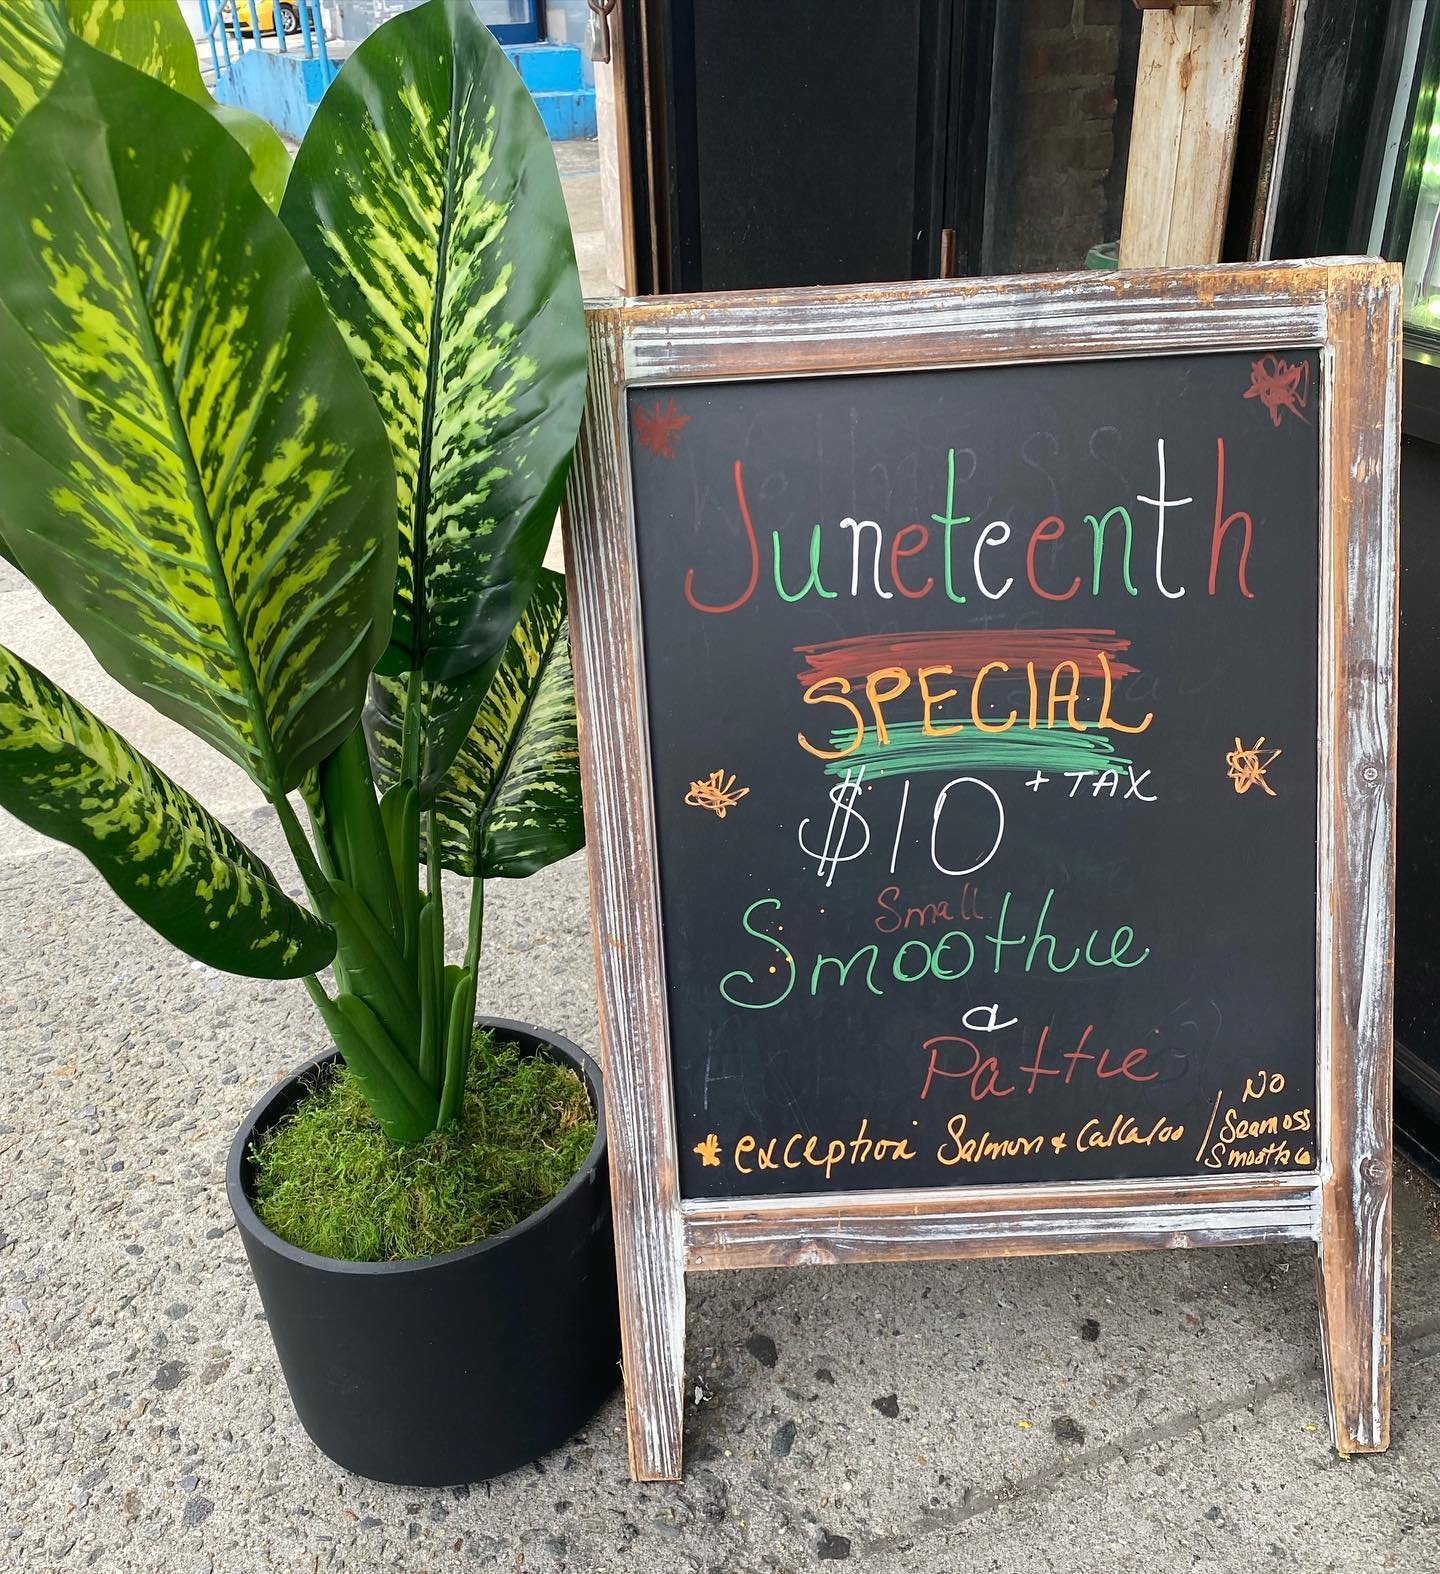 Juneteenth
SPECIAL
$10 + TAX
Small
Smoothie
a
Pattie
* exception Salmon & Callaloo / NO
Seamoss
Smoothie